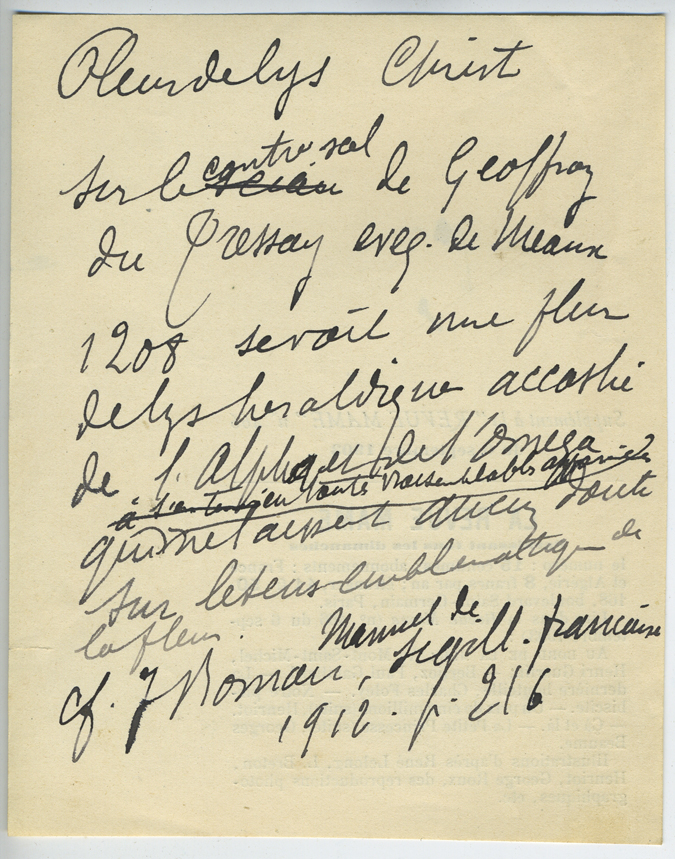 Fleur de lys Christ
Sur le sceau contre scel de Geoffroy
du Pressay eveq. de Meaux
1208 se voit une fleur
de lys heraldique accostée
de l'Alpha et de l'Omega
à
qui ne laissent aucun doute
sur le sens emblematique de
la fleur.
cf. J Roman, Manuel de Sigill. francaise
1912. p. 216